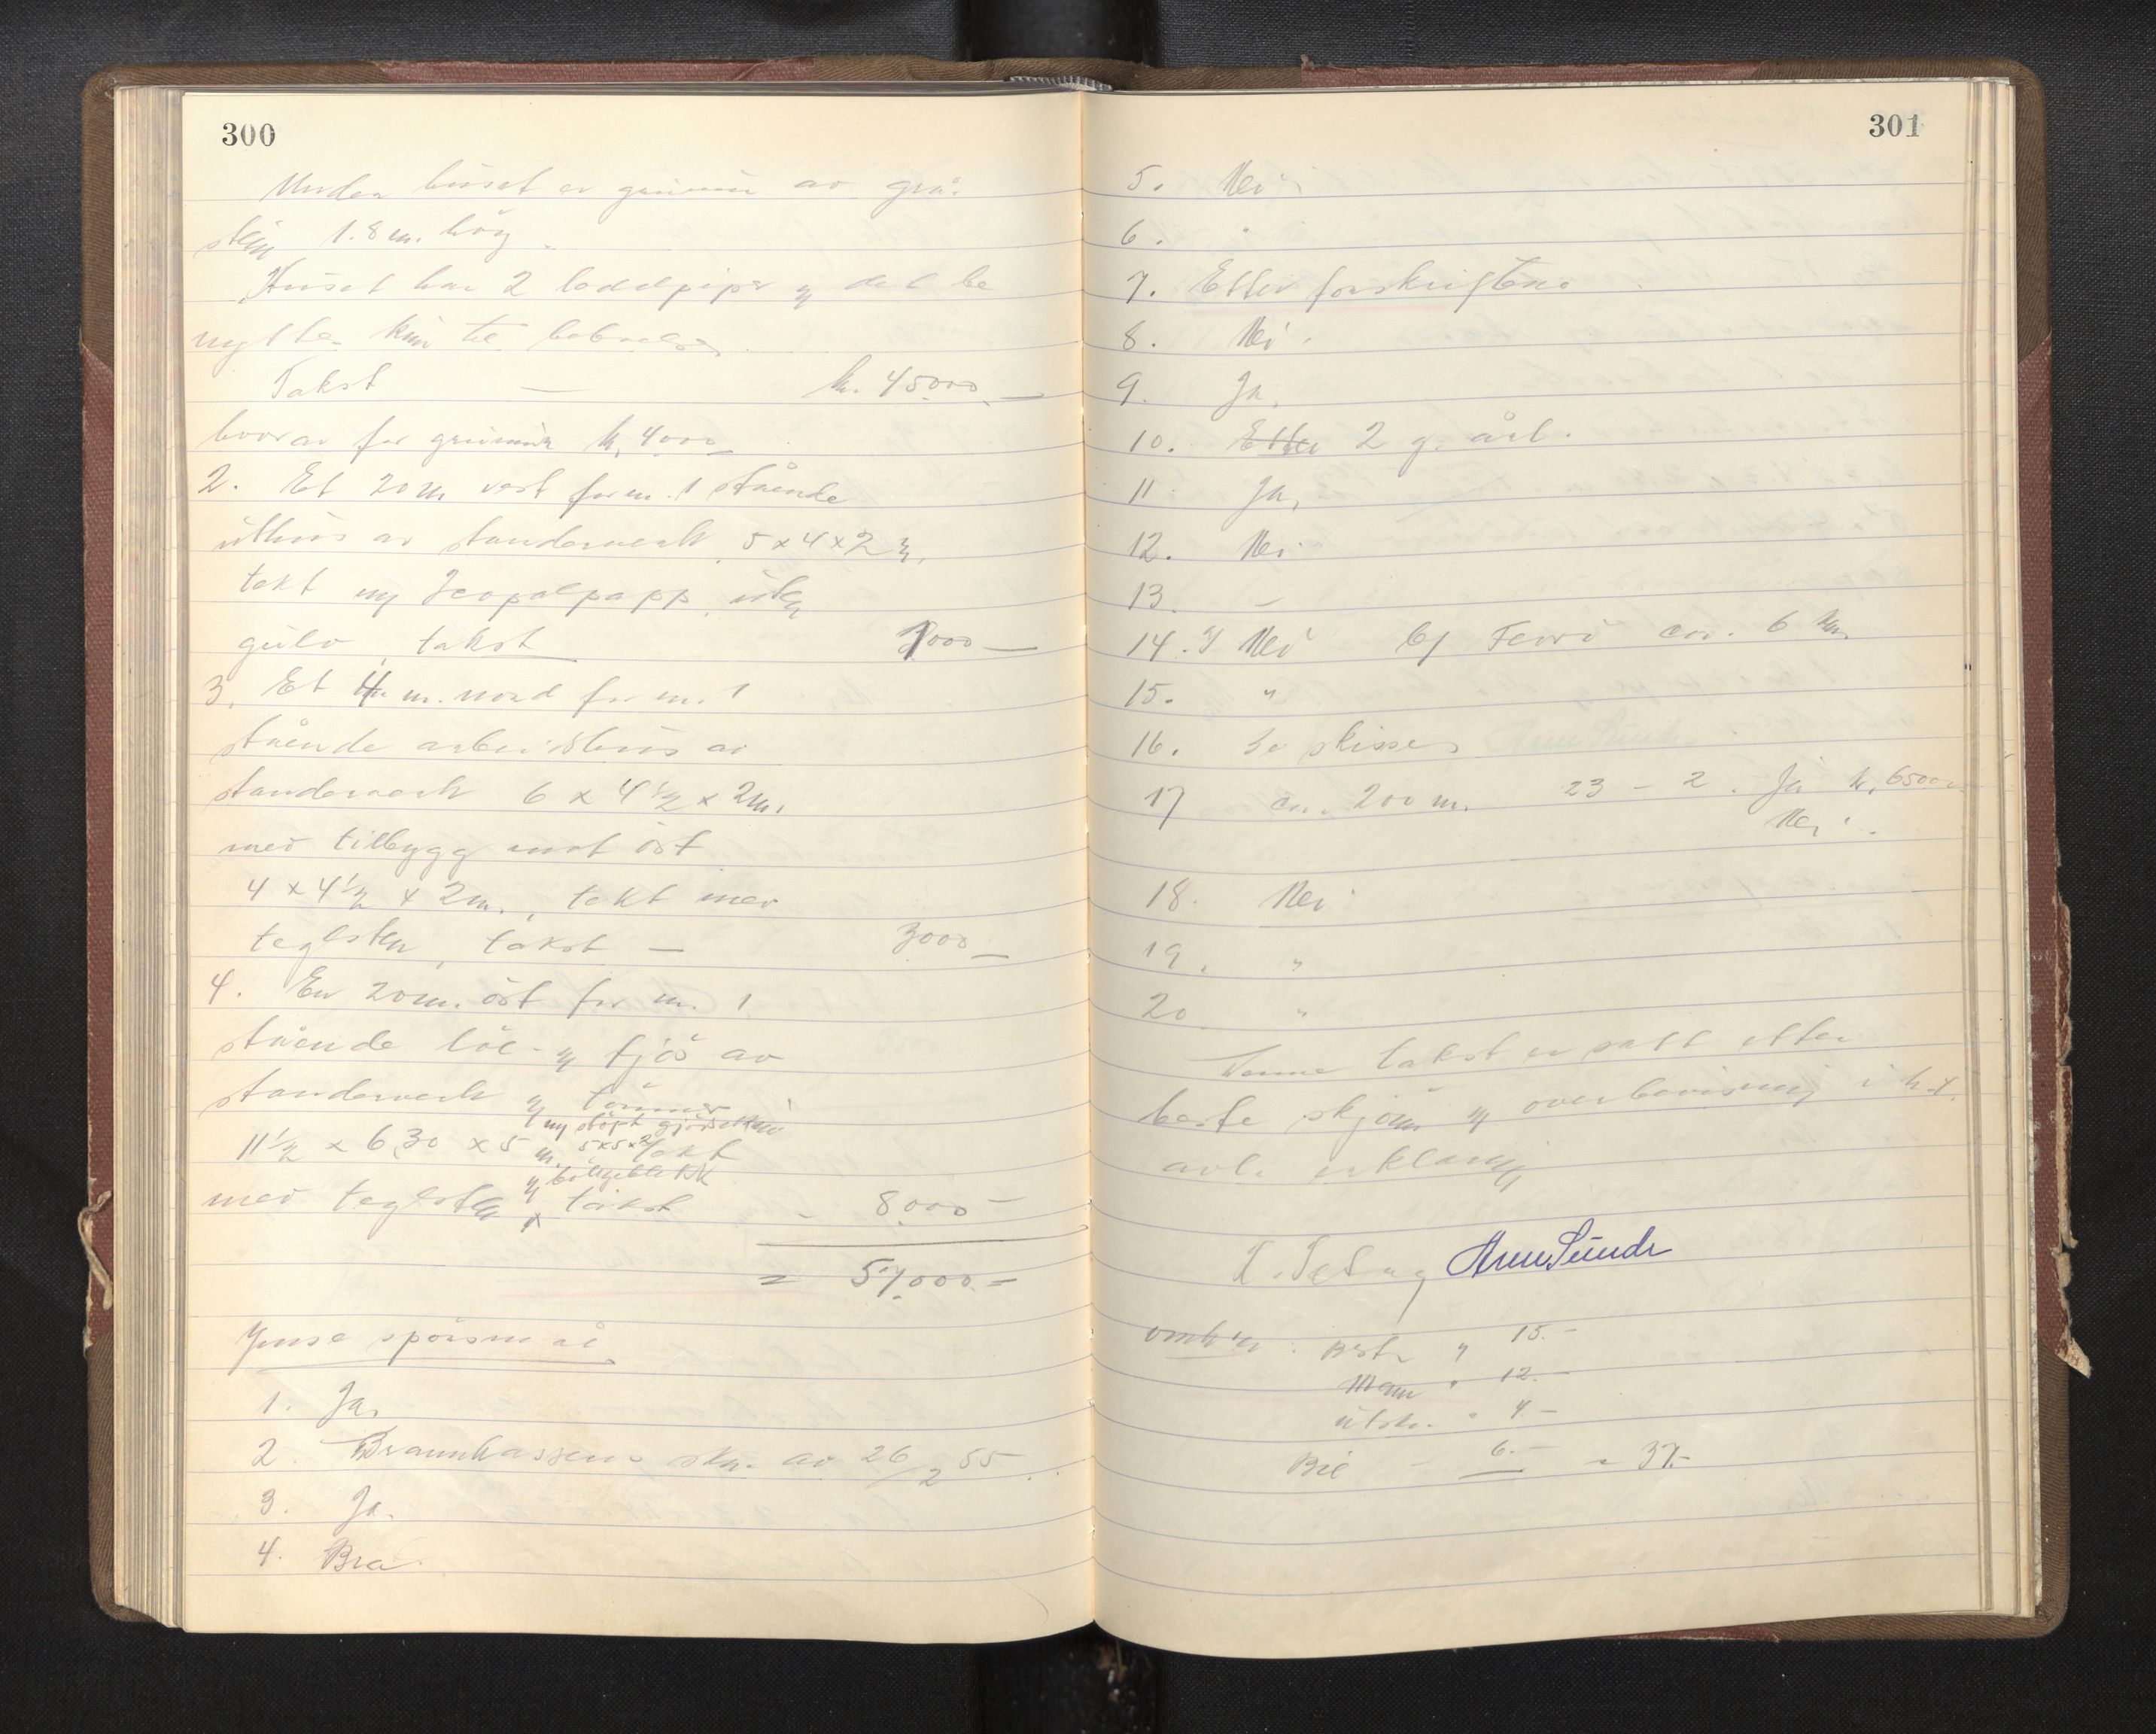 300
Under huset er grunnmur av grå-
stein 1.8 m. høy.
Huset har 2 loddpiper og det be
nyttes kun til beboelse.
Takst — kr. 45000.—
hvorav for grunnmur kr. 4000—
2. Et 20 m vest for nr. 1 stående
uthus av standerverk 5 x 4 x 2 m,
tekt m/ Icopalpapp, uten
gulv, takst 1000—
3. Et 4 m. nord for nr. 1
stående arbeidshus av
standerverk 6 x 4 1/2 x 2 m.
med tilbygg mot öst
4 x 4 1/2 x 2 m., tekt med
teglsten, takst — 3000—
4. En 20 m. öst for nr. 1
stående löe- og fjös av
standerverk og tömmer
og ny stöpt gjödselkum
11 1/2 x 6,30 x 5 m. 5x5x2 tekt
og bölgeblikk
med teglsten x takst - 8000—
= 57.000 =
Ymse spörsmål
1. Ja.
2. Brannkassens skr. av 26/2 55.
3. Ja.
4. Bra
301
5. Nei
6. "
7. Etter forskriftene
8. Nei.
9. Ja.
10. Etter 2 g. årl.
11 Ja,
12. Nei
13. —
14. a/ Nei b/ ca. 6 km.
15. "
16. Se skisse
17 ca. 200 m. 23 - 2. Ja kr. 6500
Nei.
18. Nei
19. "
20 "
Denne takst er satt etter
beste skjönn og overbevisning i h.t.
avl. erklæring
Arne Sunde
omk'er: Best. " 15.—
Mann " 12.—
utskr. " 4.—
Bil 6.— = 37.-